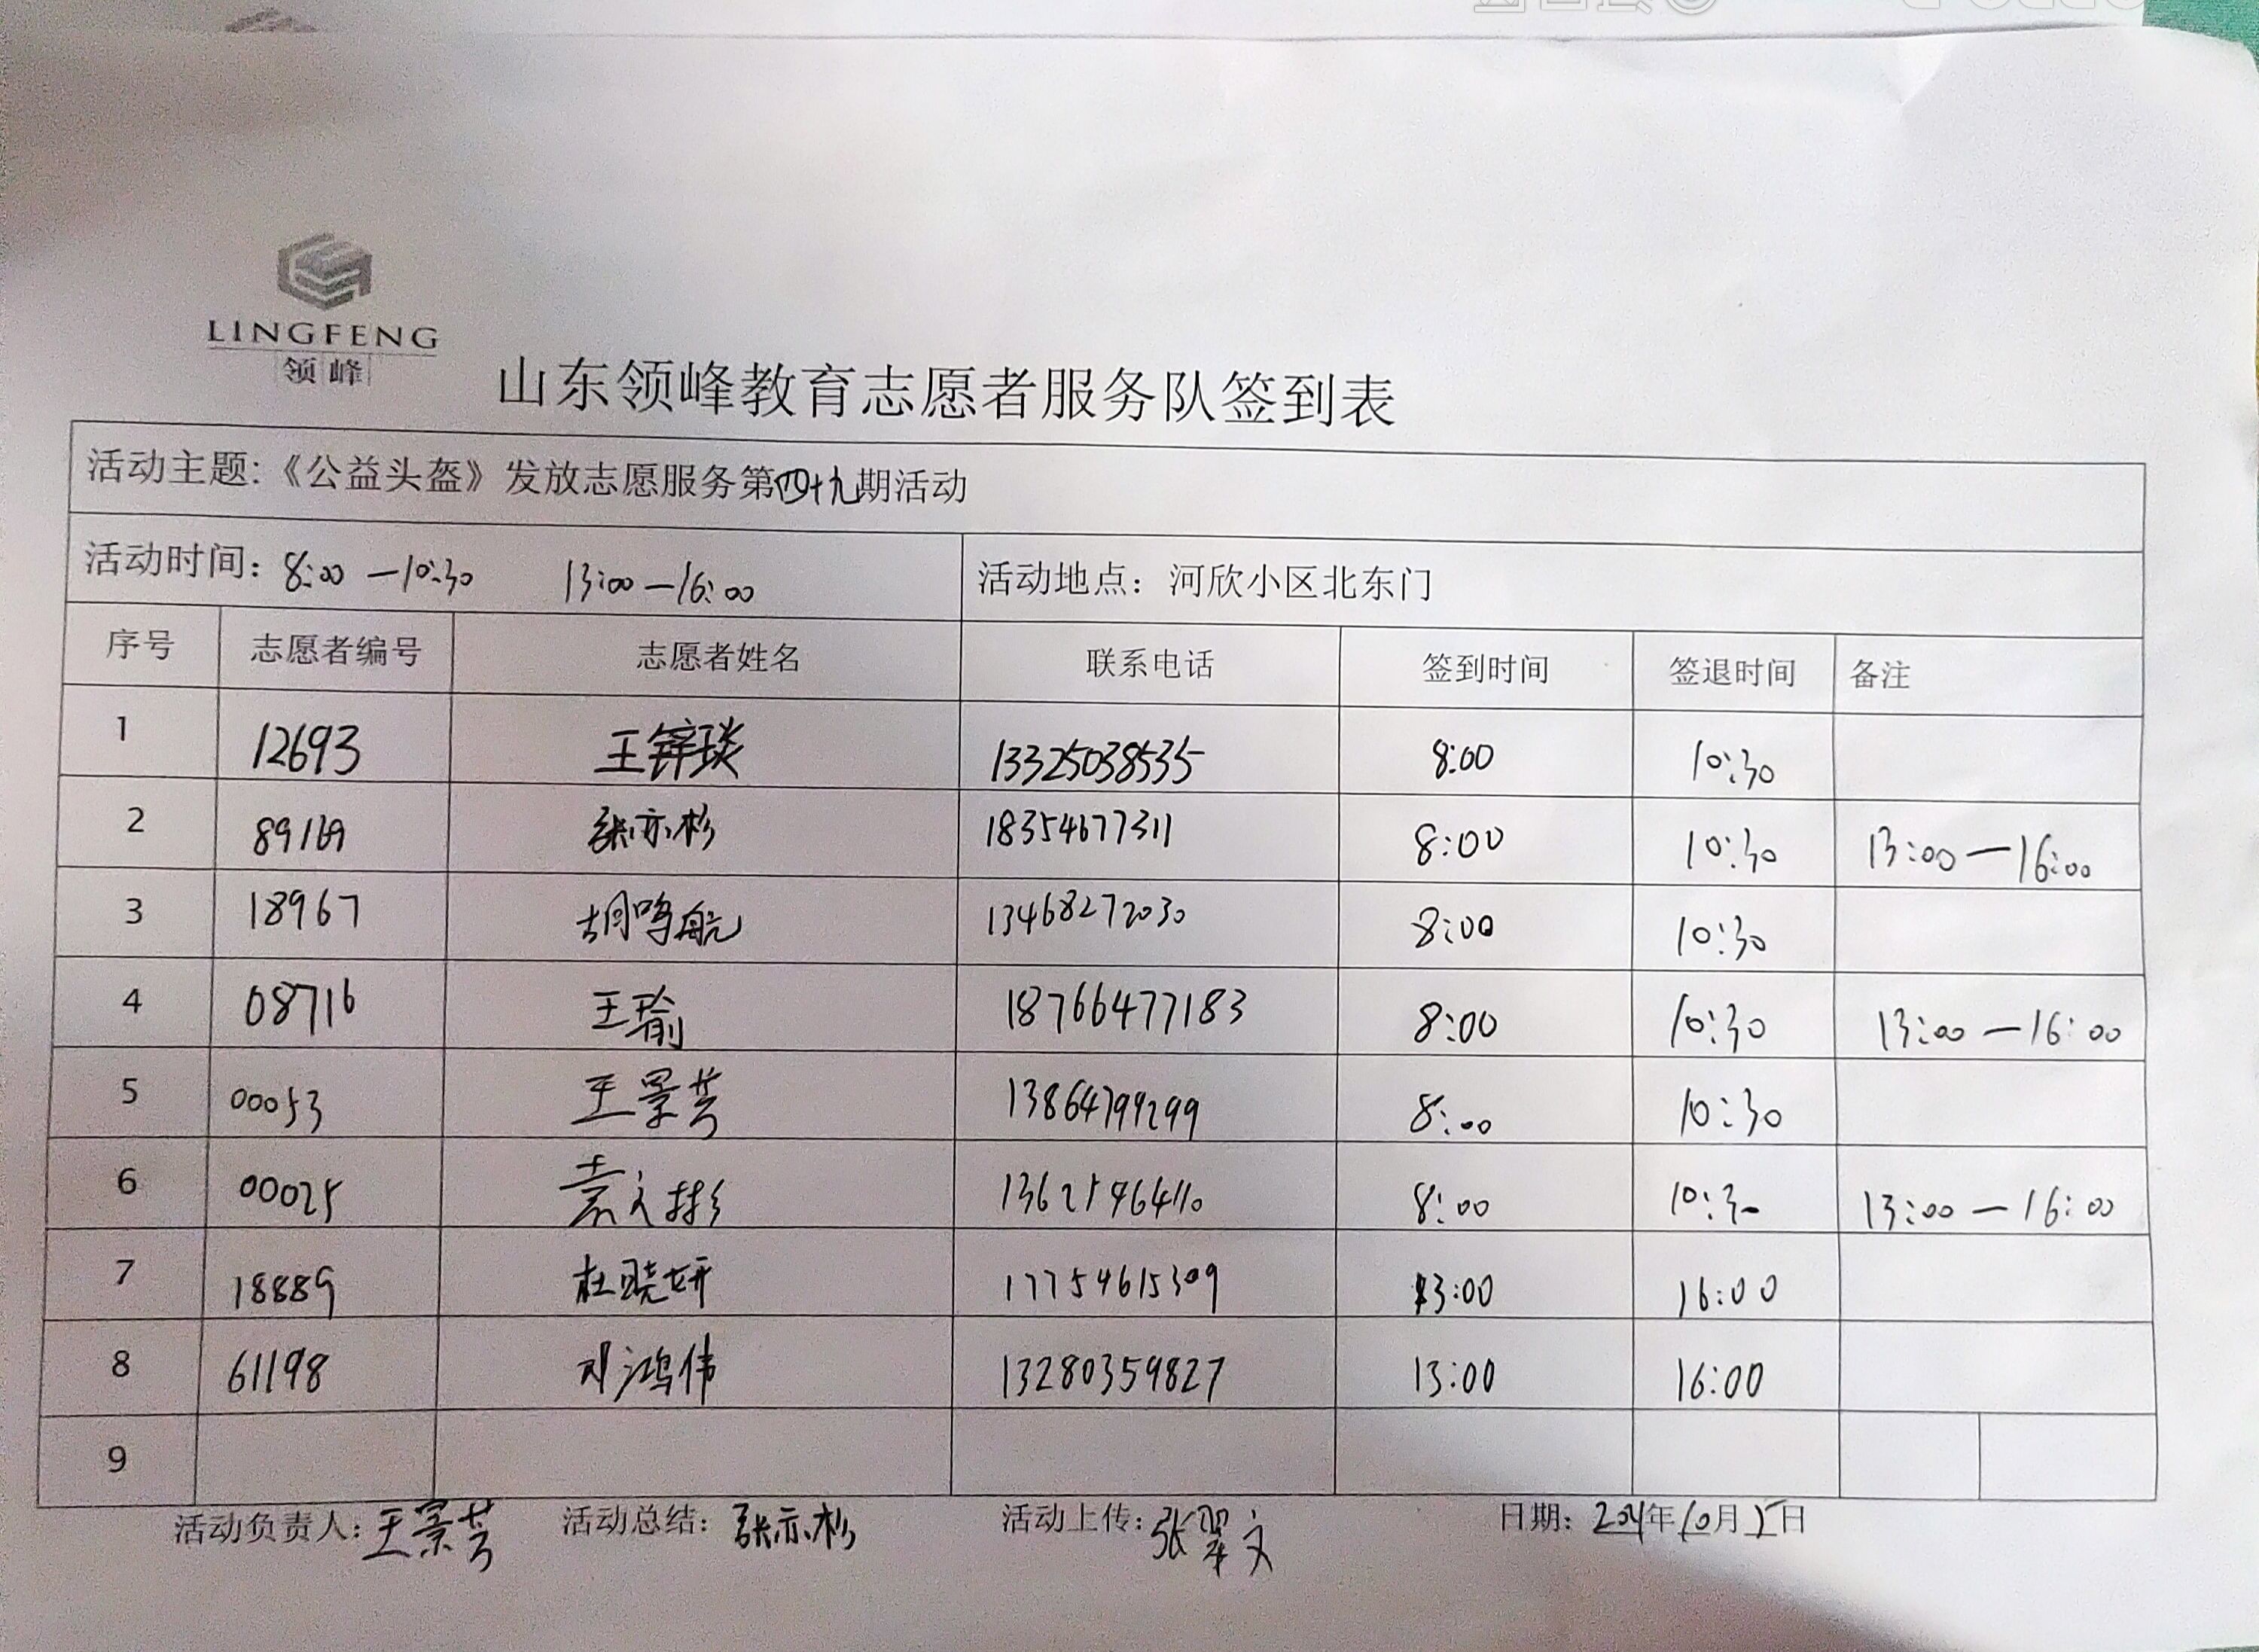 LINGFENG
领峰
山东领峰教育志愿者服务队签到表
活动主题:《公益头盔》发放志愿服务第四十九期活动
活动时间: 8:00 —10:30 13:00 —16:00 活动地点: 河欣小区北东门
序号 志愿者编号 志愿者姓名 联系电话 签到时间 签退时间 备注
1 12693 王锌琰 13325038535 8:00 10:30
2 89169 张亦杉 18354677311 8:00 10:30 13:00—16:00
3 18967 胡鸣航 13468272030 8:00 10:30
4 08716 王瑜 18766477183 8:00 10:30 13:00 —16:00
5 00053 王景芸 13864799299 8:00 10:30
6 00025 袁文彬 8:00 10:30 13:00 —16:00
7 18889 杜晓妍 17754615309 13:00 16:00
8 61198 邓鸿伟 13280359827 13:00 16:00
9
活动负责人: 王景芸 活动总结: 张亦杉 活动上传: 张翠文 日期: 年10月5日